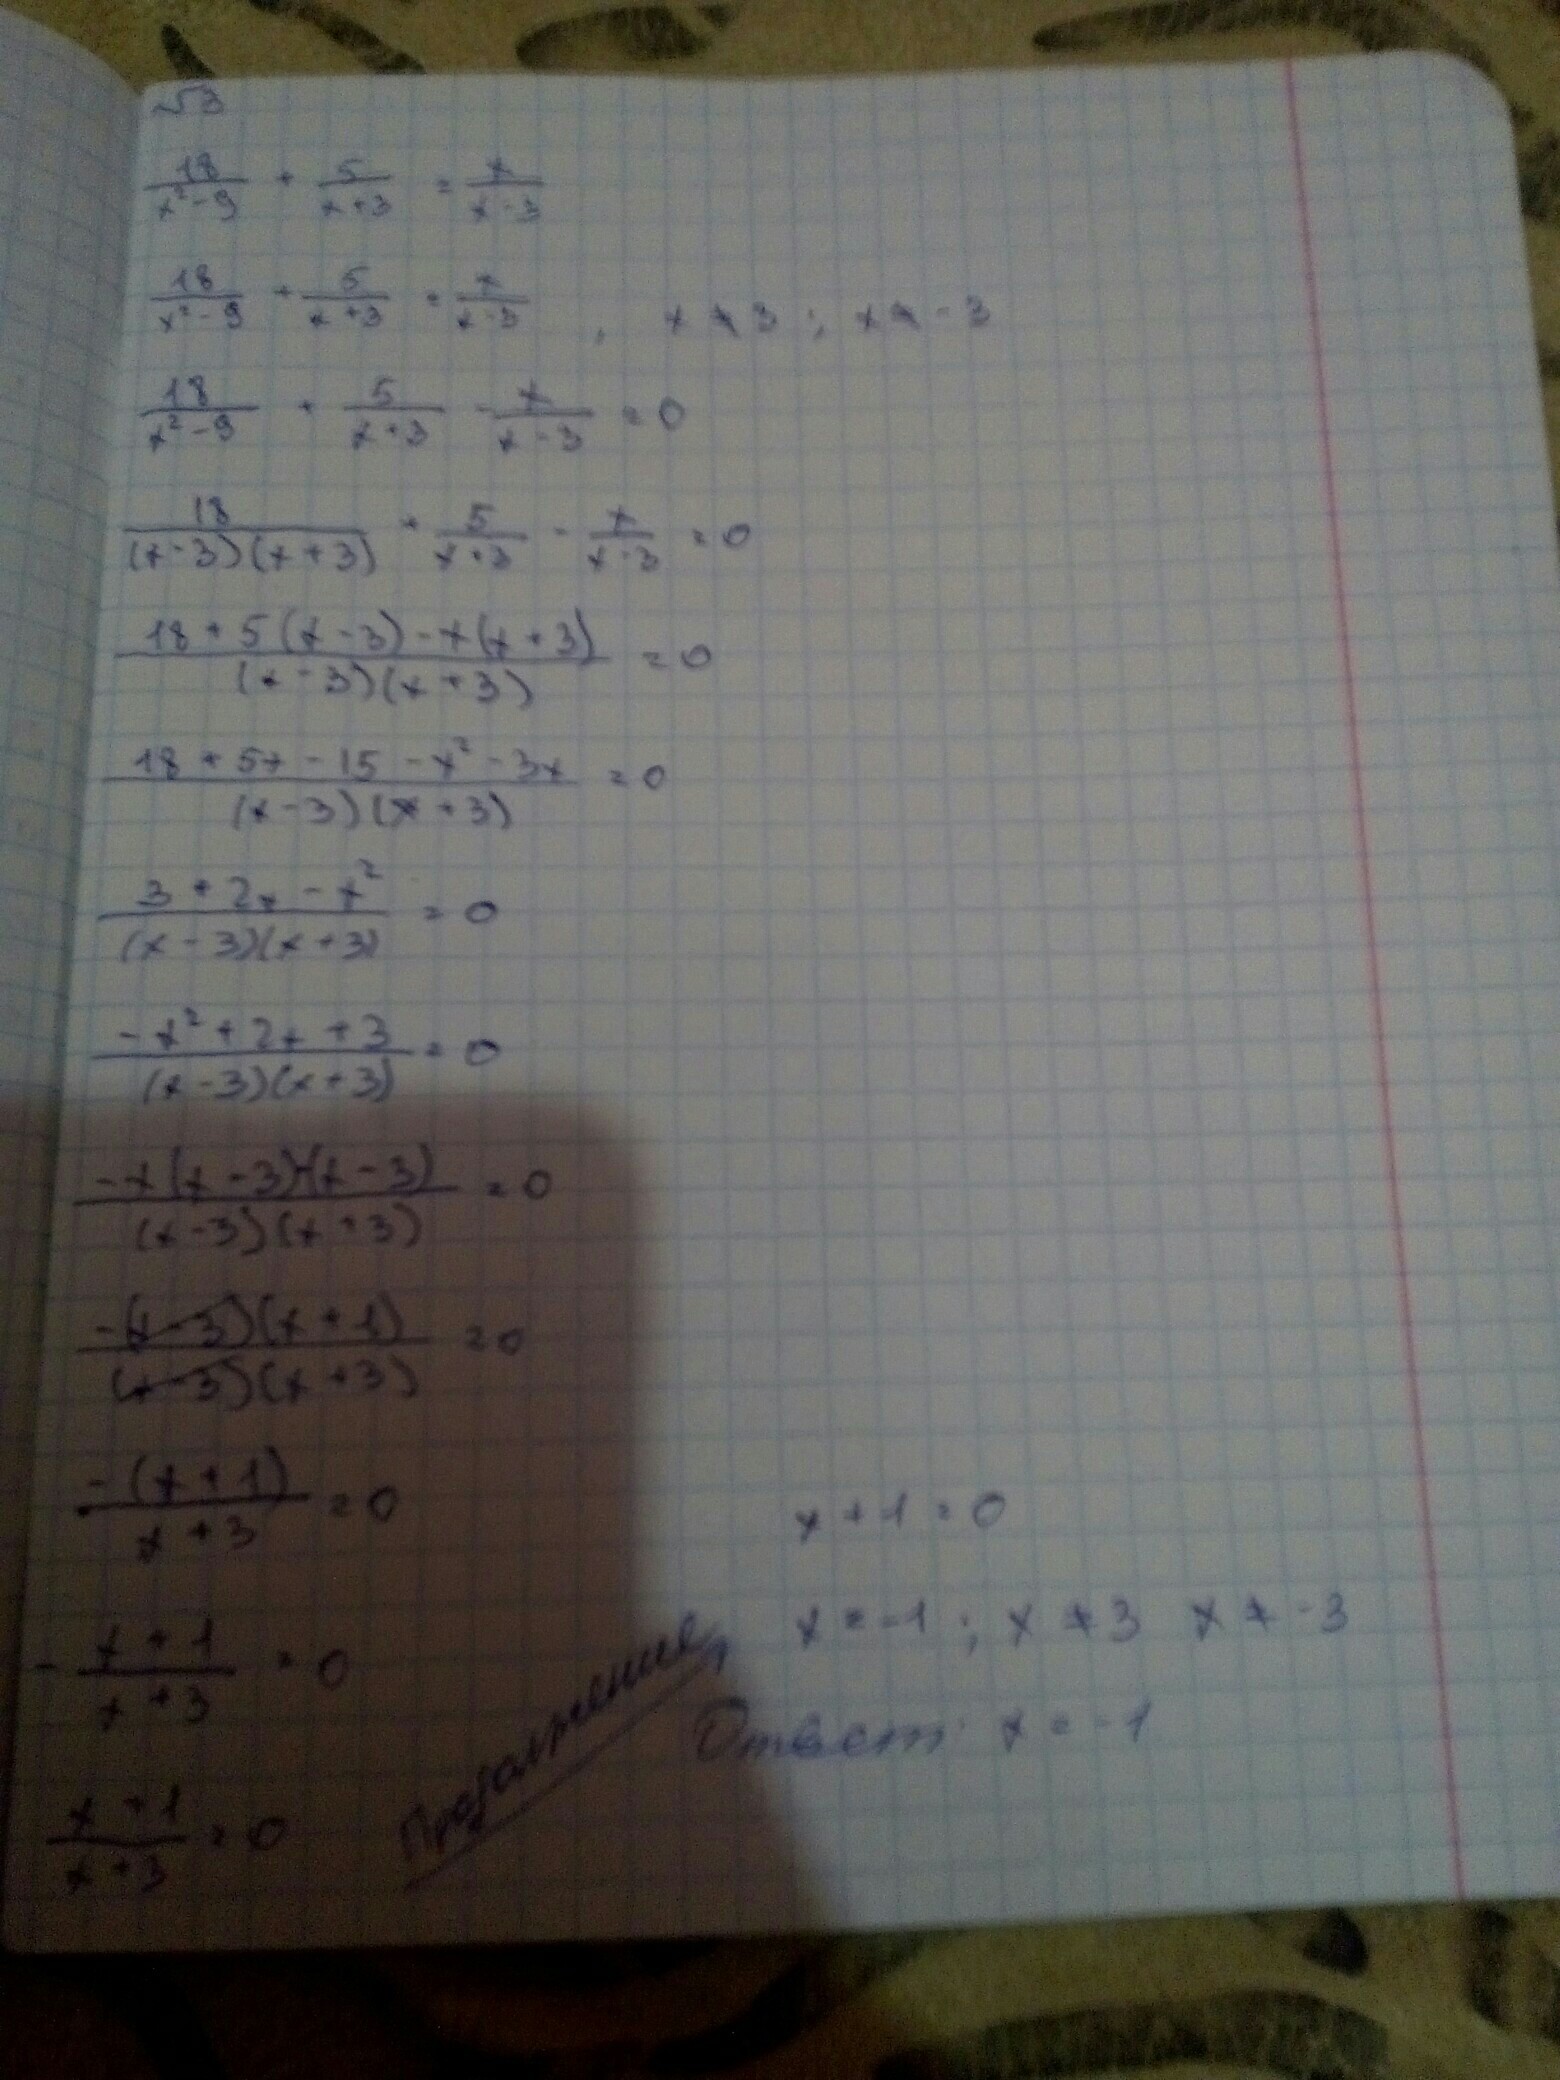 √3
18/(x²-9) + 5/(x+3) = x/(x-3)
18/(x²-9) + 5/(x+3) = x/(x-3) , x ≠ 3 ; x ≠ -3
18/(x²-9) + 5/(x+3) - x/(x-3) = 0
18/((x-3)(x+3)) + 5/(x+3) - x/(x-3) = 0
(18+5(x-3)-x(x+3))/((x-3)(x+3)) = 0
(18+5x-15-x²-3x)/((x-3)(x+3)) = 0
(3+2x-x²)/((x-3)(x+3)) = 0
(-x²+2x+3)/((x-3)(x+3)) = 0
(-x(x-3)-(x-3))/((x-3)(x+3)) = 0
(-(x-3)(x+1))/((x-3)(x+3)) = 0
(-(x+1))/(x+3) = 0
- (x+1)/(x+3) = 0
(x+1)/(x+3) = 0
Продолжение,
x+1=0
x=-1 ; x ≠ 3 x ≠ -3
Ответ: x = -1